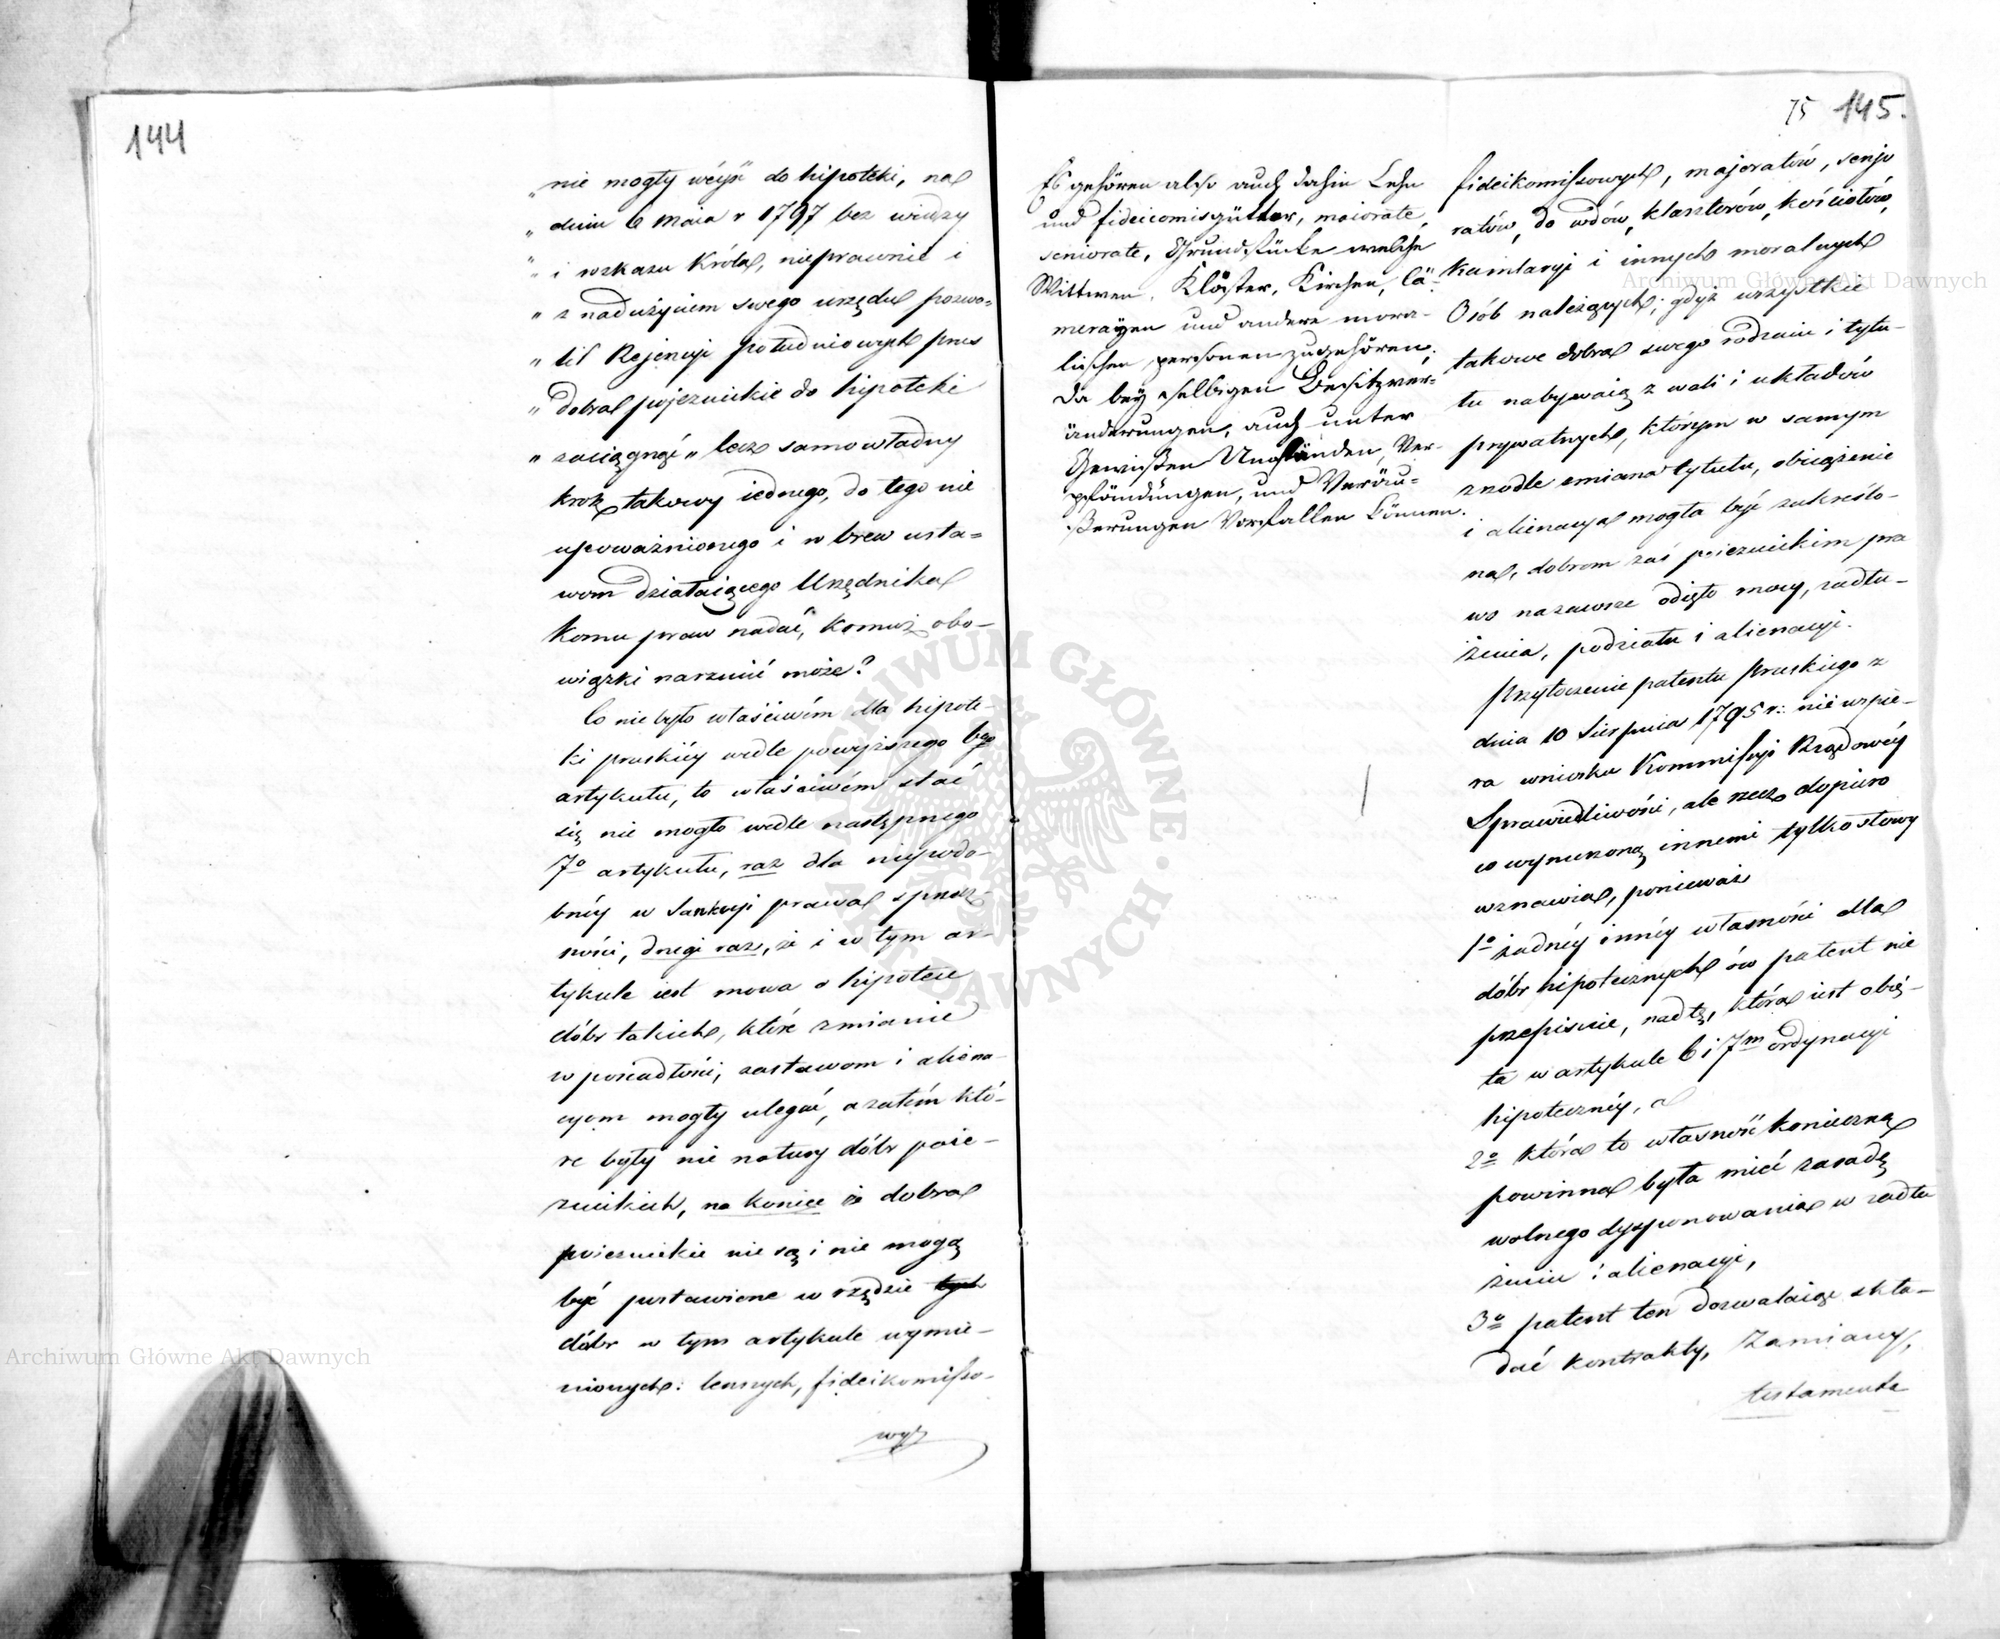 144
„ nie mogły weyść do hipoteki, na
„ dniu 6 Maia r 1797 bez wiedzy
„ i wskazu Króla, nieprawnie i
„ z nadużyciem swego urzędu pozwo=
„ lił Rejencyi południowych prus
„ Dobra pojezuickie do hipoteki
„ zaciągnąć „ lecz samowładny
krok takowy iednego, do tego nie
upoważnionego i w brew usta=
wom działaiącego Urzędnika
komu praw nadać, komuż obo-
wiązki narzucić może?
Co nie było właściwém dla hipote-
ki pruskiéy wedle powyższego 6go
artykułu, to właściwém stać
się nie mogło wedle następnego
7o artykułu, raz dla niepodo-
bnéy w Sankcyi prawa sprzecz-
ności, drugi raz, że i w tym ar-
tykule iest mowa o hipotece
dóbr takich, które zmianie
w posiadłości, zastawom i aliena-
cyom mogły ulegać, a zatém któ-
re były nie natury dóbr poie-
zuickich, na koniec że dobra
poiezuickie nie są i nie mogą
być postawione w rzędzie tych
dóbr w tym artykule wymie-
nionych: lennych, fideikomisso-
wych
75 145.
Es gehören also auch dahin Lehn
und fideicomisgütter, maiorate,
seniorate, Grundstücke welche
Wittwen, Klöster, Kirchen, Cä-
merayen und andere mora-
lischen personen zugehören;
da bey selbigen Besitzver=
änderungen, auch unter
Gewißen Umständen, Ver-
pfändungen, und Veräu=
ßerungen Vorfallen können.
fideikomissowych, majoratów, senjo
ratów, do wdów, klasztorów, kościołów,
Kamlaryi i innych moralnych
Osób należących; gdyż wszystkie
takowe dobra swego rodzaiu i tytu-
łu nabywaią z woli i układów
prywatnych, którym w samym
źrzódle zmiana tytułu, obciążenie
i alienacya mogła być zakreślo-
na, dobrom zaś poiezuickim pra
wo nazawsze odięło mocy, zadłu-
żenia, podziału i alienacyi.
Przytoczenie patentu Pruskiego z
dnia 10 Sierpnia 1795 r: nie wspie-
ra wniosku Kommissyi Rządowéy
Sprawiedliwości, ale rzecz dopiero
co wynurzoną innemi tylko słowy
wznawia, ponieważ
1o żadnéy innéy własności dla
dóbr hipotecznych ów patent nie
przepisuie, nad tę, która iest obię-
ta w artykule 6 i 7m ordynacyi
hipotecznéy, a
2o która to własność koniecznie
powinna była mieć zasadę
wolnego dysponowania w zadłu
żeniu i alienacyi,
3o patent ten dozwalaiąc skła-
dać kontrakty, Zamiany,
testamenta